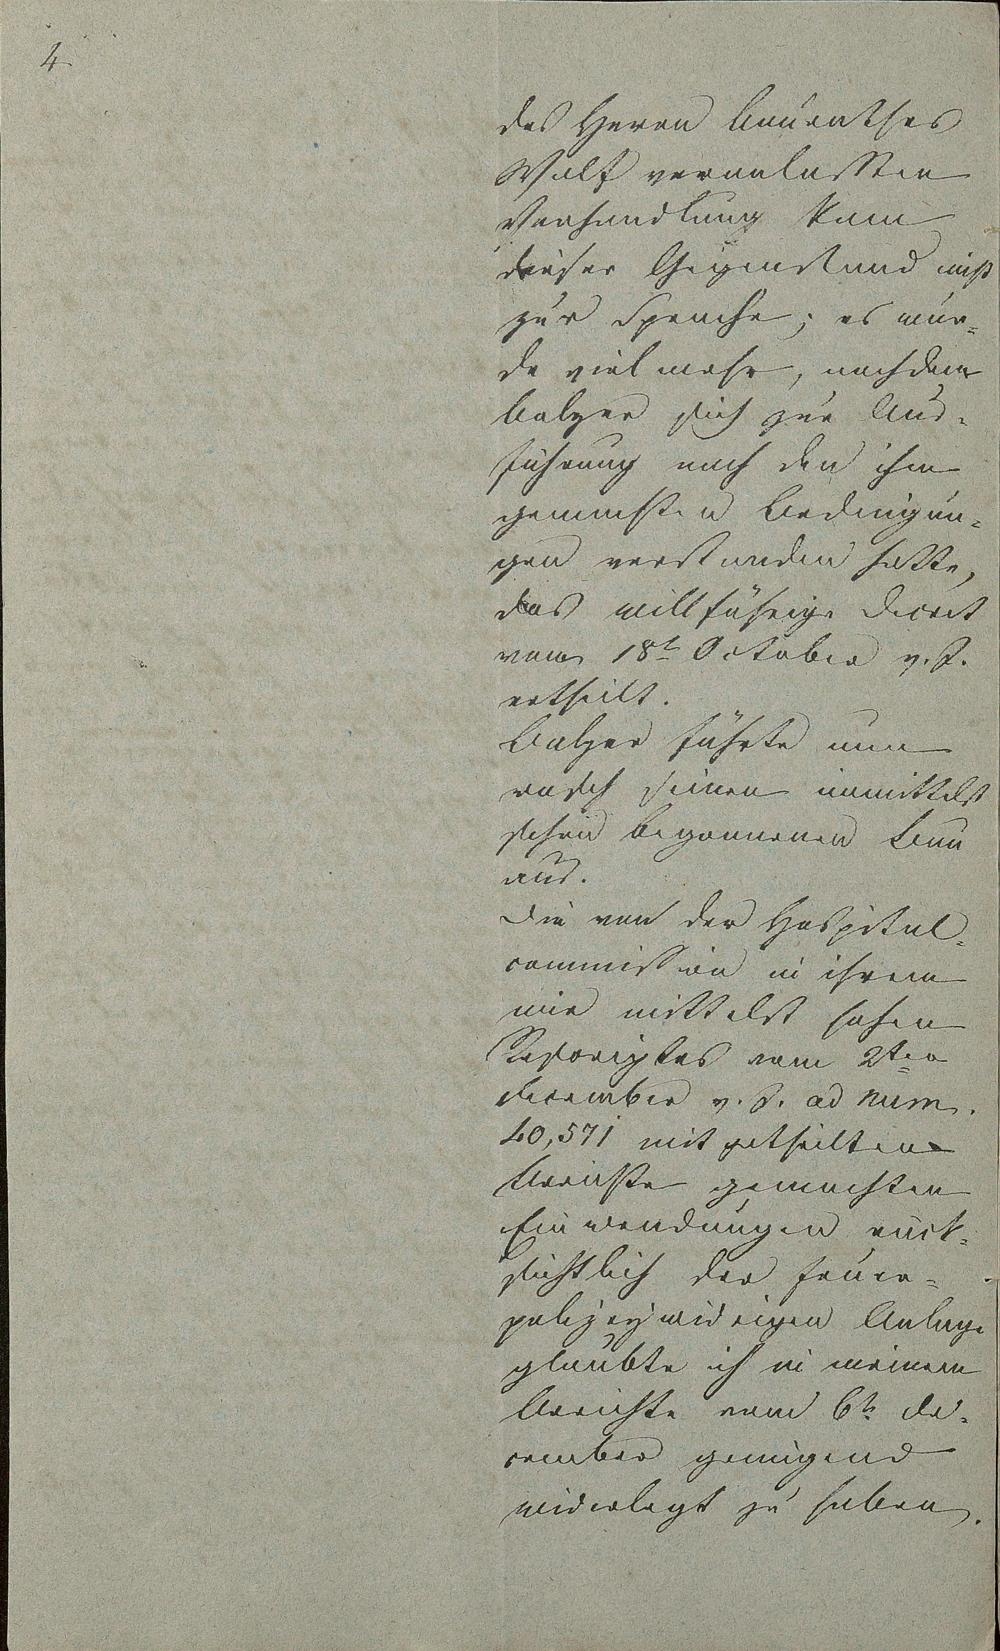 4
des Herrn Baurathes
Wolf veranlassten
Verhandlung kam
dieser Gegenstand nicht
zur Sprache; es wur=
de vielmehr, nachdem
Balzer sich zur Aus=
führung nach den ihm
gemachten Bedingun=
gen verstanden hatte,
das willfährige Decret
vom 18t October v. J.
ertheilt.
Balzer führte nun
rasch seinen inmittelst
schon begonnenen Bau
aus.
Die von der Hospital=
commission in ihrem
mir mittelst hohen
Rescriptes vom 2ten
December v. J. ad Num.
40,571 mitgetheilten
Berichte gemachten
Einwendungen rück=
sichtlich der feuer=
polizeywidrigen Anlage
glaubte ich in meinem
Berichte vom 6t. De=
cember genügend
widerlegt zu haben.